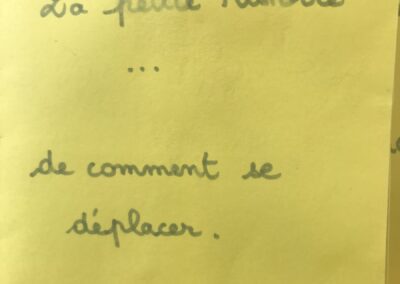 La petite
...
de comment se
déplacer.